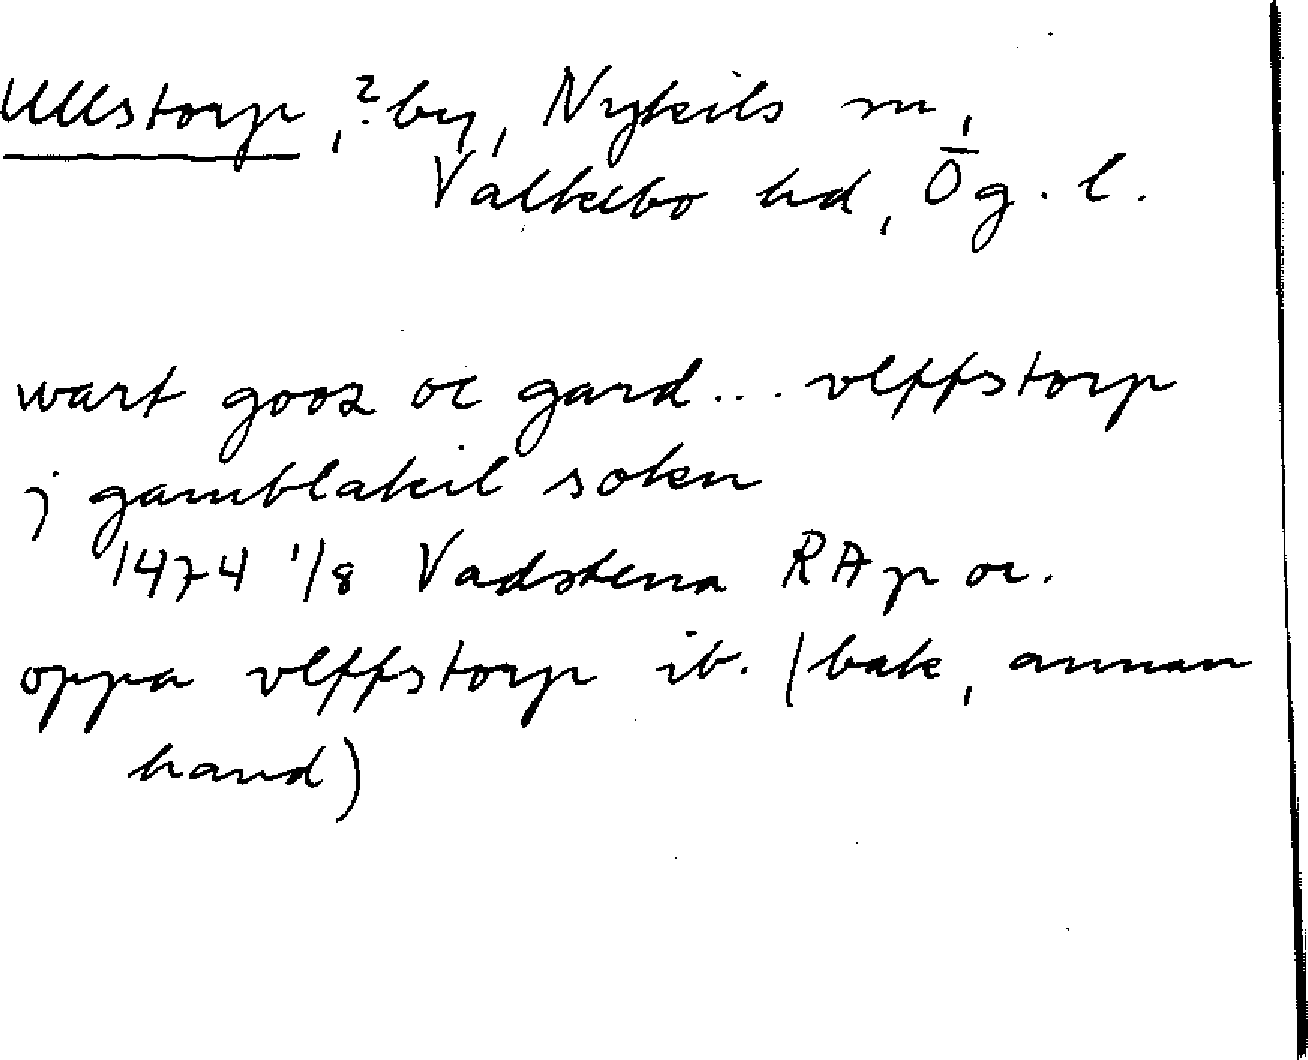 Ullstorp, ? by, Nykils sn,
Valkebo hd, Ög. l.
wart gooz oc gard... vlffstorp
j gamblakil sokn
1474 1/8 Vadstena RAp or.
oppa vlffstorp ib. (bak, annan
hand)